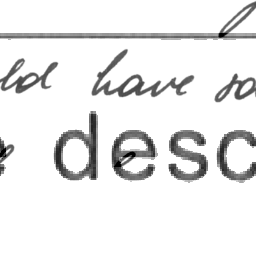 ld have so
desc